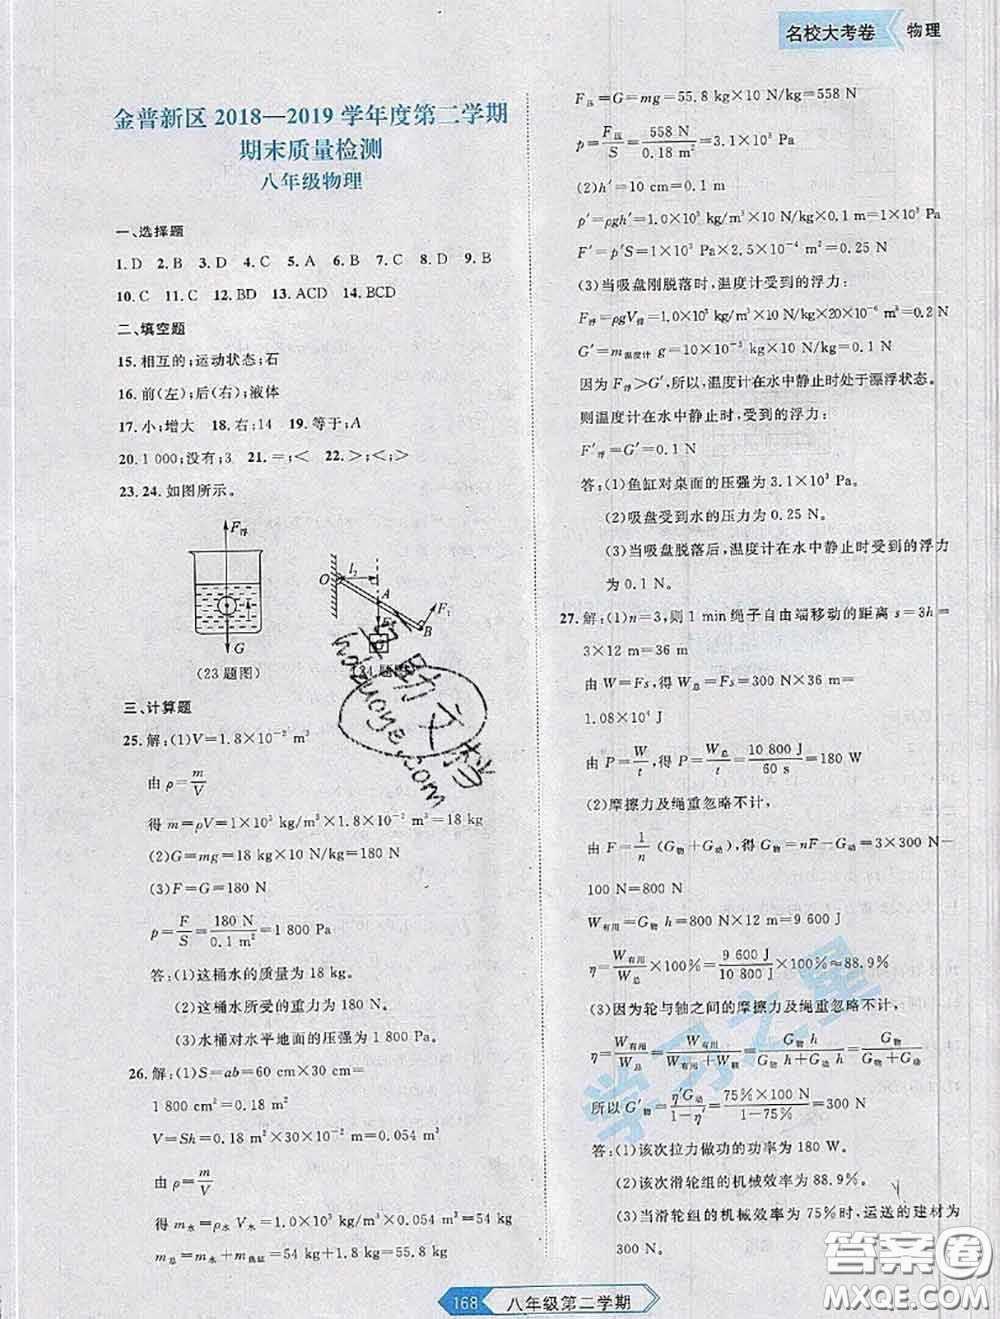 名校大考卷 物理
金普新区 2018—2019 学年度第二学期
期末质量检测
八年级物理
一、选择题
1.D 2.B 3.D 4.C 5.A 6.B 7.C 8.D 9.B
10.C 11.C 12.BD 13.ACD 14.BCD
二、填空题
15.相互的;运动状态;石
16.前(左);后(右);液体
17.小;增大 18.右;14 19.等于;A
20.1 000;没有;3 21.=;< 22.>;<
23.24.如图所示。
F浮
G
(23题图)
O
l₂
A
F₁
B
三、计算题
25.解:(1)V=1.8×10⁻² m³
由 ρ=m/V
得 m=ρV=1×10³ kg/m³×1.8×10⁻² m³=18 kg
(2)G=mg=18 kg×10 N/kg=180 N
(3)F=G=180 N
p=F/S=180 N/0.1 m²=1 800 Pa
答:(1)这桶水的质量为 18 kg。
(2)这桶水所受的重力为 180 N。
(3)水桶对水平地面的压强为 1 800 Pa。
26.解:(1)S=ab=60 cm×30 cm=
1 800 cm²=0.18 m²
V=Sh=0.18 m²×30×10⁻² m=0.054 m³
由 ρ=m/V
得 m水=ρ水 V水=1.0×10³ kg/m³×0.054 m³=54 kg
m总=m水+m鱼缸=54 kg+1.8 kg=55.8 kg
F压=G=mg=55.8 kg×10 N/kg=558 N
p=F压/S=558 N/0.18 m²=3.1×10³ Pa
(2)h′=10 cm=0.1 m
p′=ρgh′=1.0×10³ kg/m³×10 N/kg×0.1 m=1×10³ Pa
F′=p′S=1×10³ Pa×2.5×10⁻⁴ m²=0.25 N
(3)当吸盘刚脱落时,温度计受到的浮力:
F浮=ρgV排=1.0×10³ kg/m³×10 N/kg×20×10⁻⁶ m³=0.2 N
G′=m温度计 g=10×10⁻³ kg×10 N/kg=0.1 N
因为 F浮>G′,所以,温度计在水中静止时处于漂浮状态。
则温度计在水中静止时,受到的浮力:
F′浮=G′=0.1 N
答:(1)鱼缸对桌面的压强为 3.1×10³ Pa。
(2)吸盘受到水的压力为 0.25 N。
(3)当吸盘脱落后,温度计在水中静止时受到的浮力
为 0.1 N。
27.解:(1)n=3,则 1 min 绳子自由端移动的距离 s=3h=
3×12 m=36 m
由 W=Fs,得 W总=Fs=300 N×36 m=
1.08×10⁴ J
由 P=W/t,得 P=W总/t=10 800 J/60 s=180 W
(2)摩擦力及绳重忽略不计,
由 F=1/n(G物+G动),得 G物=nF-G动=3×300 N-
100 N=800 N
W有用=G物 h=800 N×12 m=9 600 J
η=W有用/W总×100%=9 600 J/10 800 J×100%≈88.9%
(3)因为轮与轴之间的摩擦力及绳重忽略不计,
η=W有用/W总=W有用/(W有用+W额)=G物 h/(G物 h+G动 h)=G物/(G物+G动)
所以 G′物=η′G动/(1-η′)=75%×100 N/(1-75%)=300 N
答:(1)该次拉力做功的功率为 180 W。
(2)该次滑轮组的机械效率为 88.9%。
(3)当滑轮组的机械效率为 75%时,运送的建材为
300 N。
168 八年级第二学期
答案圈
MXQE.COM
学习之星
hzduoye.com